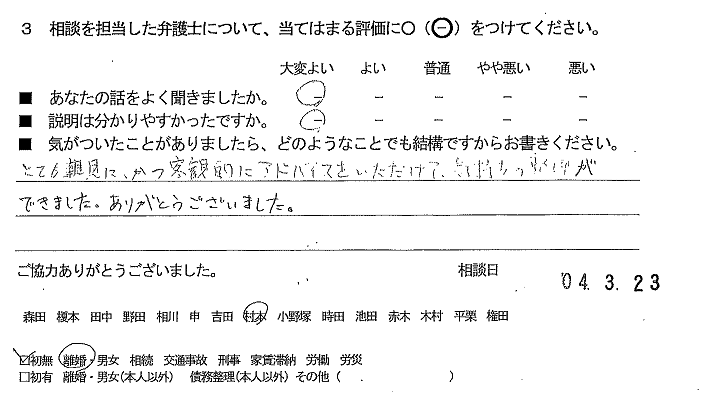 3 相談を担当した弁護士について、当てはまる評価に○(⊖)をつけてください。
大変よい よい 普通 やや悪い 悪い
■ あなたの話をよく聞きましたか。 - - - - -
■ 説明は分かりやすかったですか。 - - - - -
■ 気がついたことがありましたら、どのようなことでも結構ですからお書きください。
とても親身に、かつ客観的にアドバイスをいただけて、気持ちの整理が
できました。ありがとうございました。
ご協力ありがとうございました。 相談日 04. 3. 23
森田 榎本 田中 野田 相川 申 吉田 村本 小野塚 時田 池田 赤木 木村 平栗 権田
☑初無 離婚・男女 相続 交通事故 刑事 家賃滞納 労働 労災
□初有 離婚・男女(本人以外) 債務整理(本人以外) その他( )